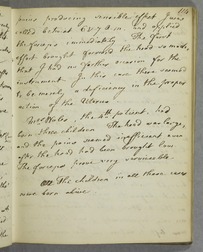 114
pains producing sensible effect, was
called between 6 & 7 A.M. and applied
the forceps immediately. The first
effort brought forward the head so much,
that I had no further occasion for the
instrument. In this case there seemed
to be merely a deficiency in the proper
action of the Uterus.
the 4th patient, had
born three children. The head was large,
and the pains seemed inefficient even
after the head had been brought low.
The forceps prove very serviceable.
The children in all these cases
were born alive.